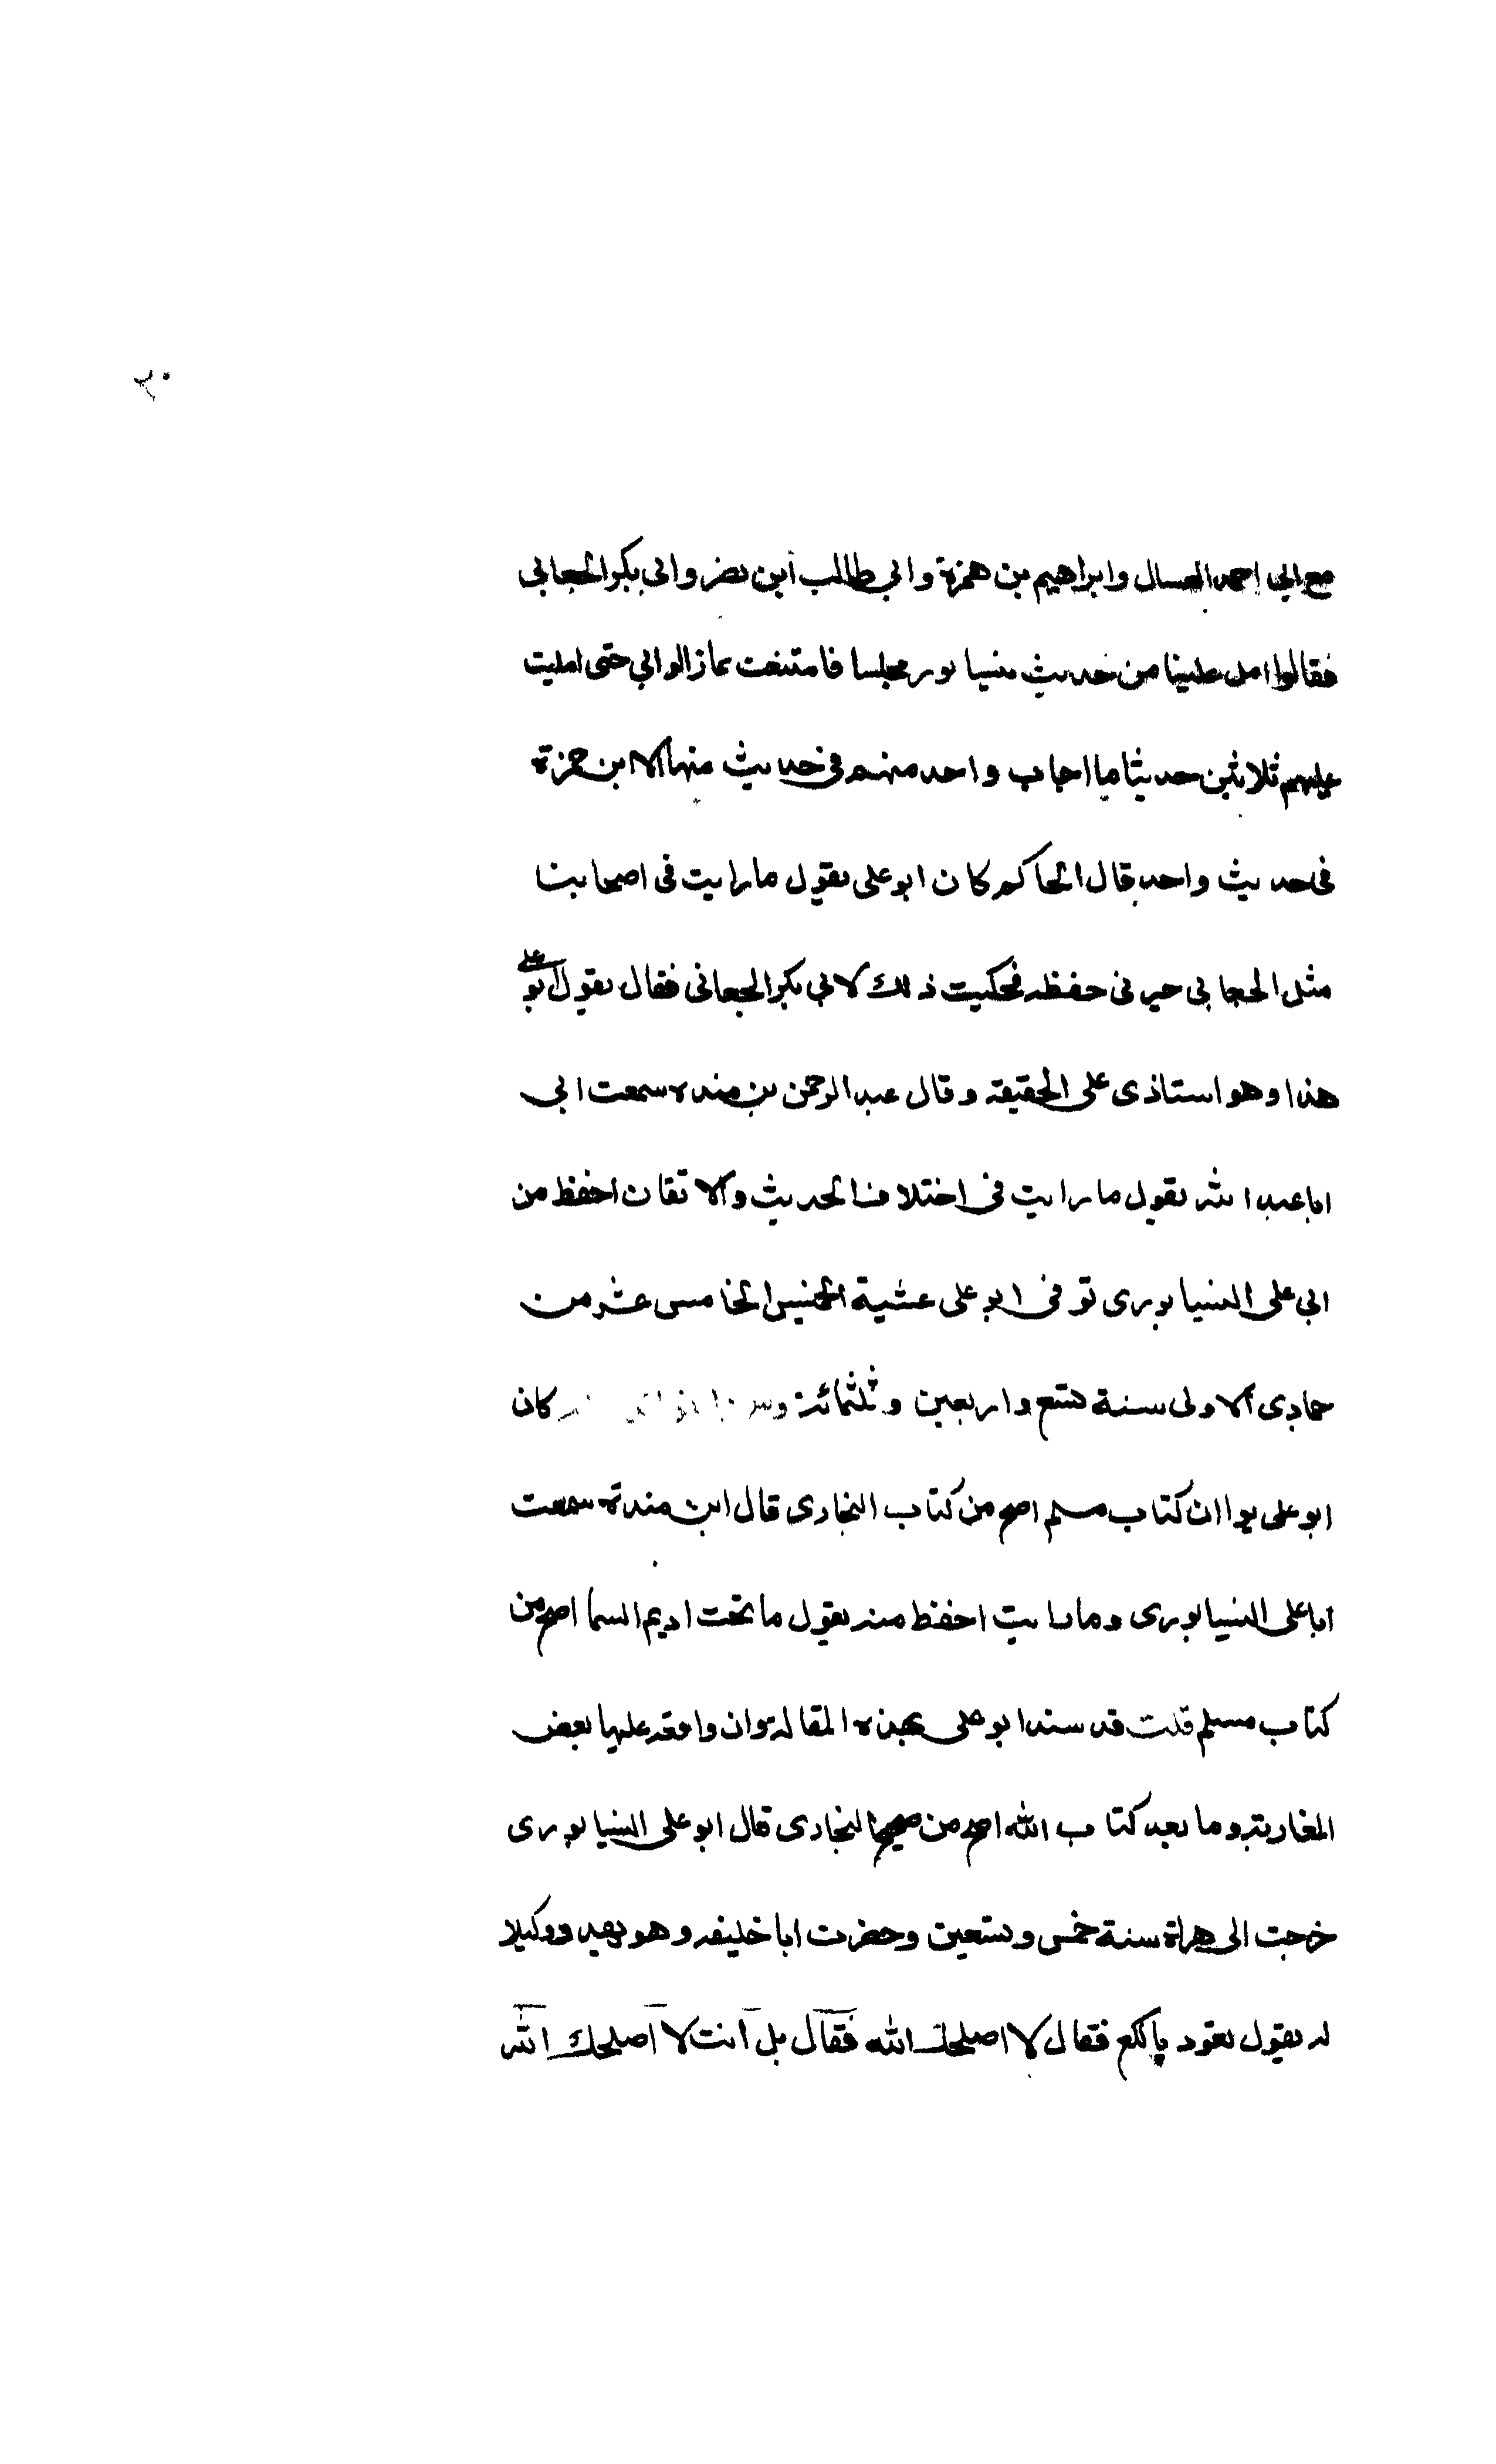 مع ابي احمد العسال وابراهيم بن همزة وابي طالب ابن نضر وابي بكر الجعابي
فقالوا امل علينا من حديث نيسابور مجلسا فامتنعت فمازالوا بي حتى امليت
عليهم ثلاثين حديثا ما اجاب واحد منهم في حديث منها الا ابن حمزة
في حديث واحد قال الحاكم كان ابو على يقول ما رايت في اصحابنا
مثل الجعابي حيرني حفظه فحكيت ذلك لابي بكر الجعابي فقال يقول ابو على
هذا وهو استاذى على الحقيقة وقال عبد الرحمن بن منده سمعت ابي
ابا عبد الله يقول ما رايت في اختلاف الحديث والاتقان احفظ من
ابي على النيسابورى توفى ابو على عشية الخميس الخامس عشر من
جمادى الاولى سنة تسع واربعين وثلثمائة كان
ابو على ان كتاب مسلم اصح من كتاب البخارى قال ابن مندة سمعت
ابا على النيسابورى وما رايت احفظ منه يقول ما تحت اديم السما اصح من
كتاب مسلم قلت قد سند ابو على بهذه المقالة وان وافقه عليها بعض
المغاربة وما بعد كتاب الله اصح من صحيح البخارى قال ابو على النيسابورى
خرجت الى هراة سنة خمس وتسعين وحضرت ابا خليفه وهو يهدد وكيلا
له يقول تعود يا لكع فقال لا اصلحك الله فقال بل انت لا اصلحك الله